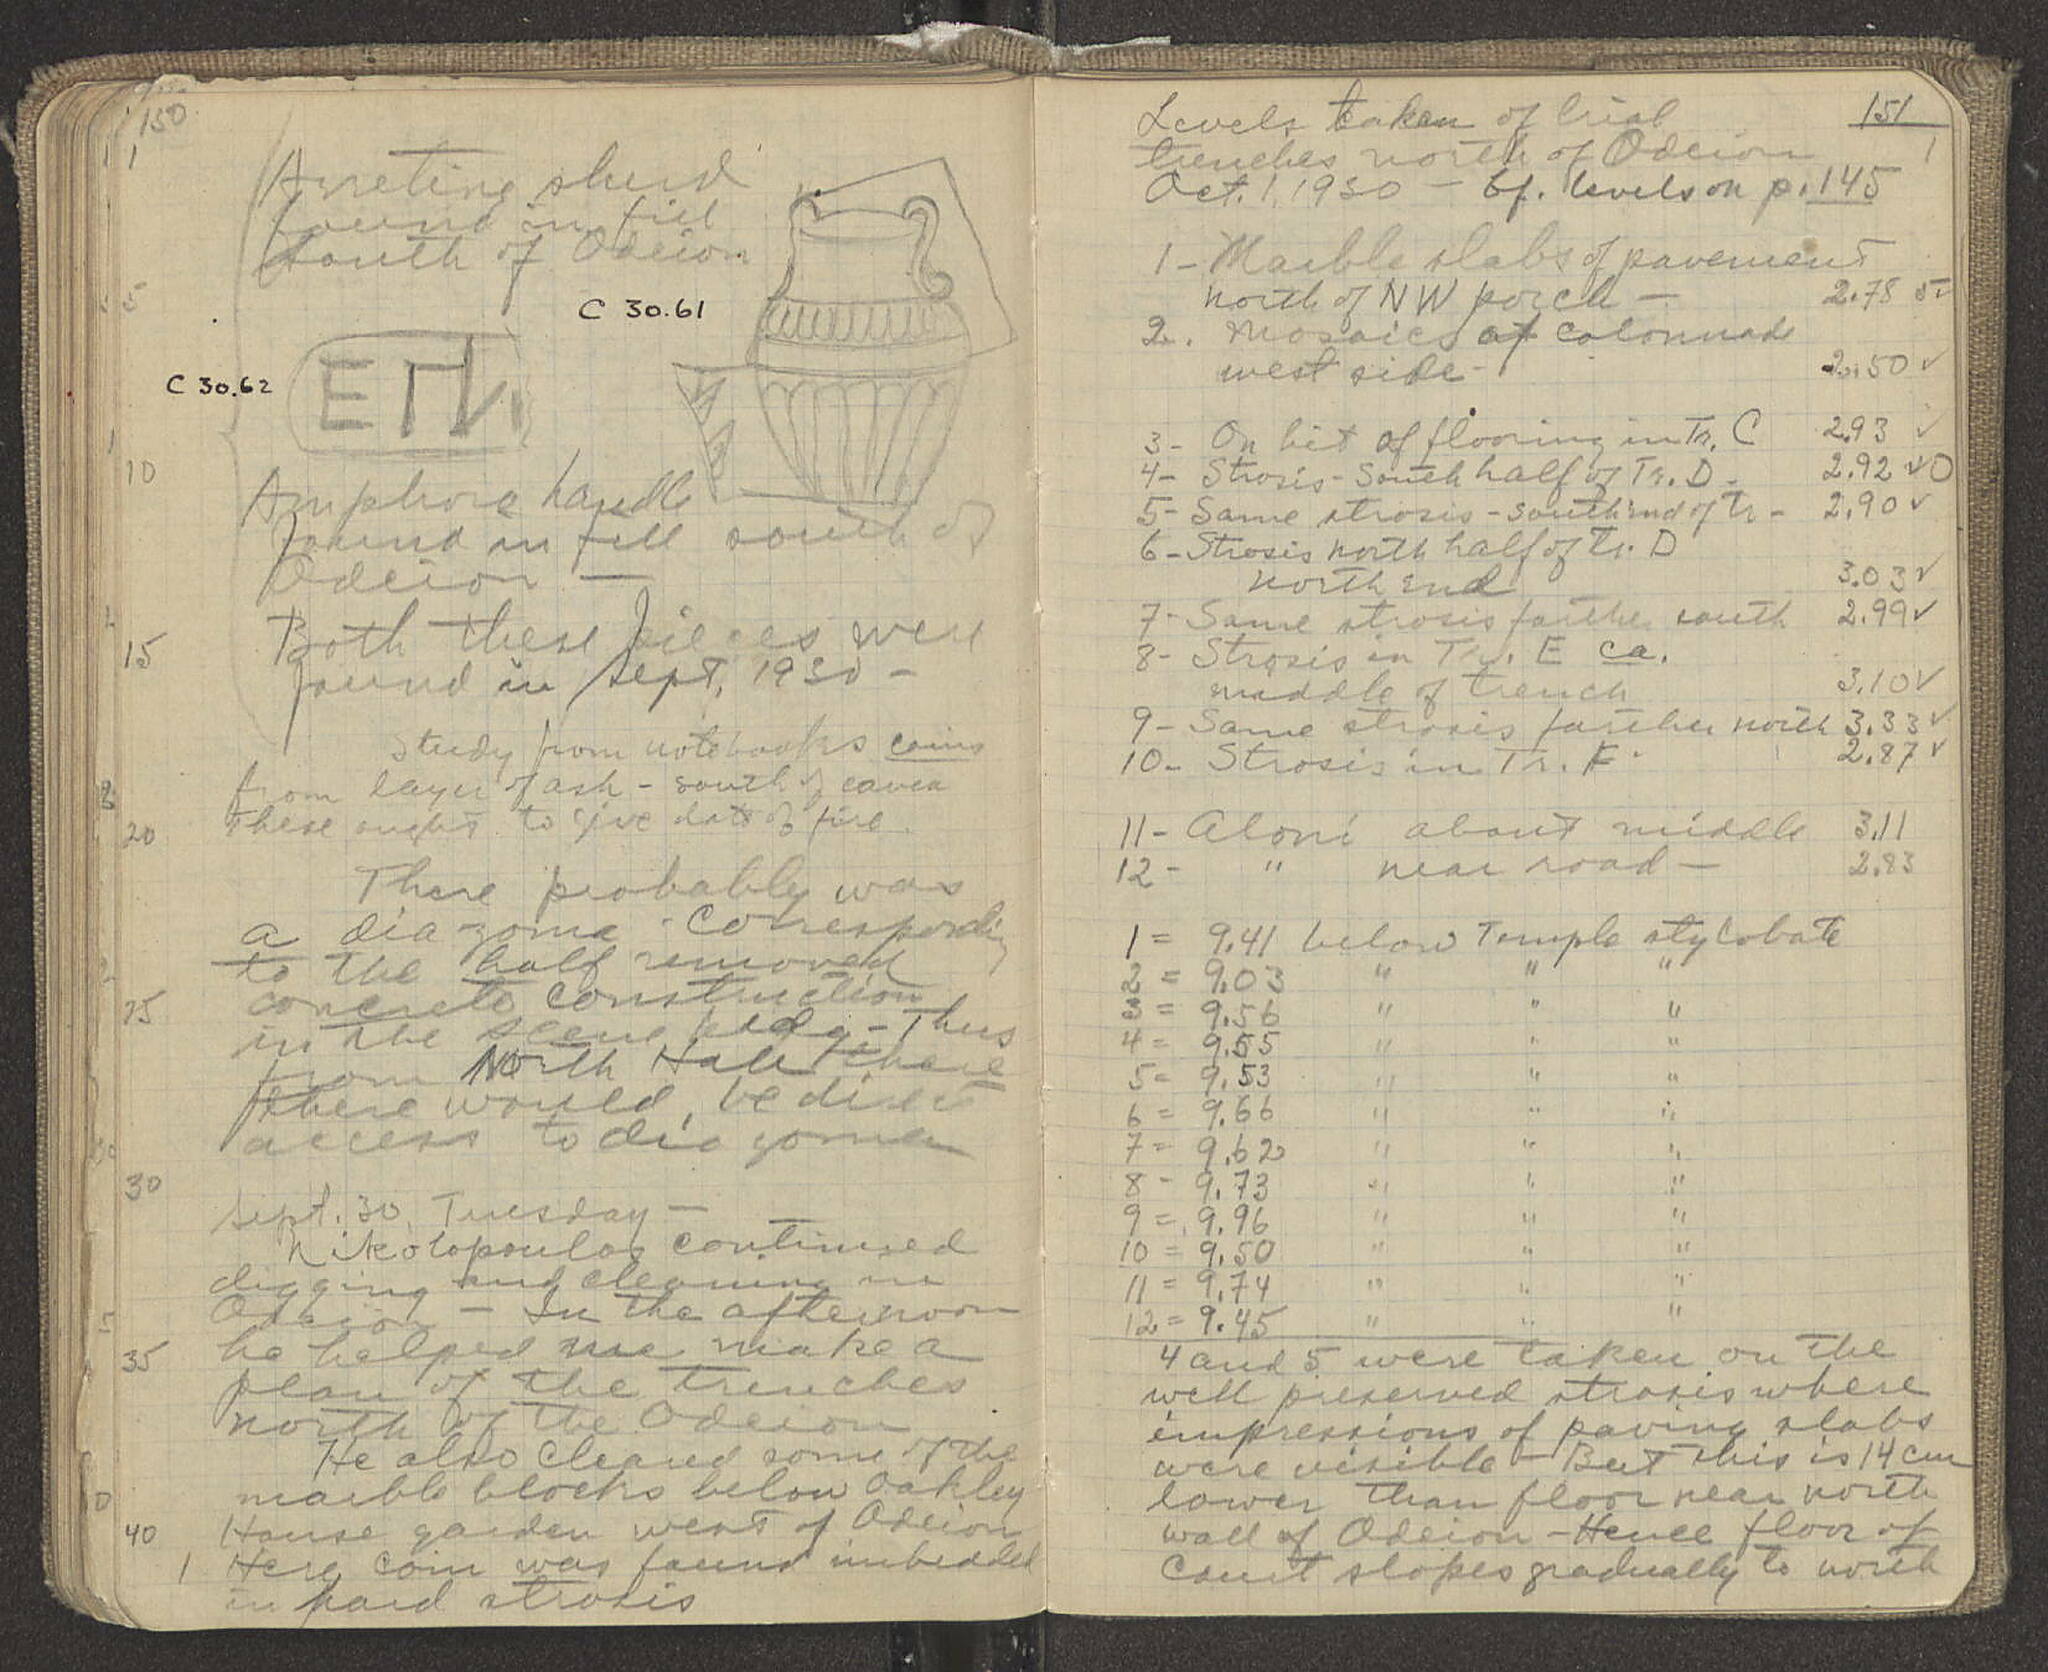 150
1
Arretine sherd
found in fill
South of Odeion
5
C 30.61
C 30.62
ΕΠΙ
10
Amphora handle
found in fill south of
Odeion —
Both these pieces were
15
found in Sept, 1930 -
Study from notebooks coins
from layer of ash - south of cavea
these ought to give date of fire.
20
There probably was
a diazoma - Corresponding
to the half removed
concrete construction
25
in the scene bldg - Thus
from North Hall there
there would be direct
access to diazoma
30
Sept. 30, Tuesday —
Nikolopoulos continued
digging and cleaning in
Odeion — In the afternoon
35
he helped me make a
plan of the trenches
north of the Odeion
He also cleared some of the
marble blocks below Oakley
40
House garden west of Odeion
1 Here coin was found imbedded
in hard strosis
151
1
Levels taken of trial
trenches north of Odeion
Oct. 1, 1930 — Cf. levels on p. 145
1 - Marble slabs of pavement
north of NW porch — 2.78 5
2. Mosaics at colonnade
west side - 2.50 ✓
3 - On bit of flooring in Tr. C 2.93 ✓
4 - Strosis - South half of Tr. D - 2.92 ✓ 0
5 - Same strosis - south end of tr - 2.90 ✓
6 - Strosis north half of tr. D
north end 3.03 ✓
7 - Same strosis farther south 2.99 ✓
8 - Strosis in Tr. E ca.
middle of trench 3.10 ✓
9 - Same strosis farther north 3.33 ✓
10 - Strosis in Tr. F 2.87 ✓
11 - Aloni about middle 3.11
12 - " near road — 2.83
1 = 9.41 below Temple stylobate
2 = 9.03 " " "
3 = 9.56 " " "
4 = 9.55 " " "
5 = 9.53 " " "
6 = 9.66 " " "
7 = 9.62 " " "
8 - 9.73 " " "
9 = 9.96 " " "
10 = 9.50 " " "
11 = 9.74 " " "
12 = 9.45 " " "
4 and 5 were taken on the
well preserved strosis where
impressions of paving slabs
were visible — But this is 14 cm
lower than floor near north
wall of Odeion — Hence floor of
Court slopes gradually to north